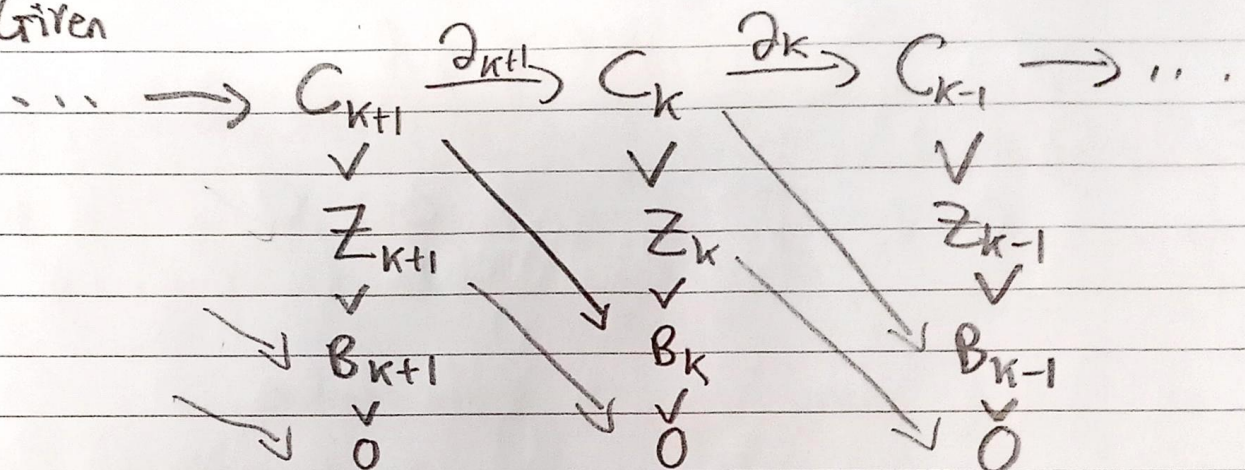 Given
... → C_{K+1} —∂_{K+1}→ C_K —∂_K→ C_{K-1} → ...
∨ ∨ ∨
Z_{K+1} Z_K Z_{K-1}
∨ ∨ ∨
B_{K+1} B_K B_{K-1}
∨ ∨ ∨
0 0 0